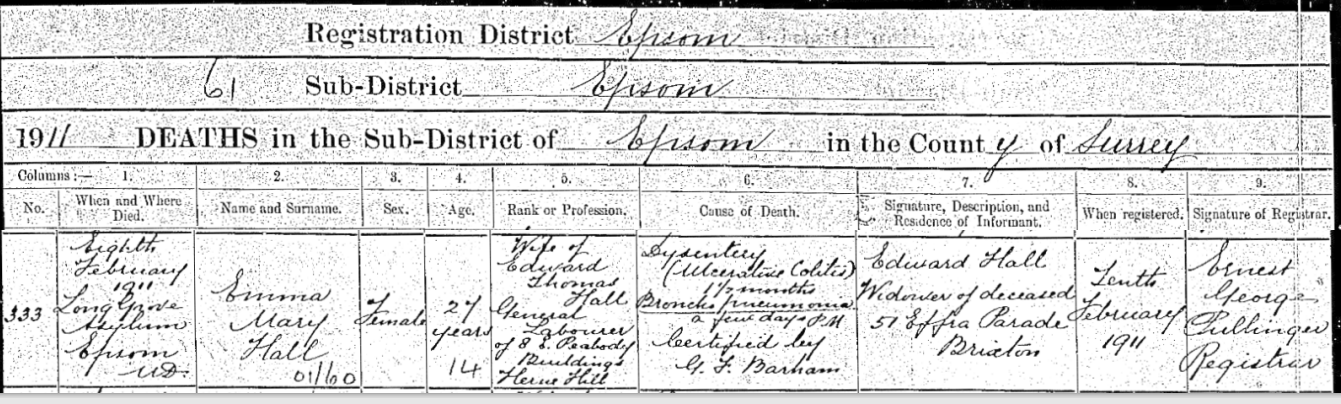 Registration District Epsom
61 Sub-District Epsom
1911 DEATHS in the Sub-District of Epsom in the County of Surrey
Columns :— 1. 2. 3. 4. 5. 6. 7. 8. 9.
No. When and Where Died. Name and Surname. Sex. Age. Rank or Profession. Cause of Death. Signature, Description, and Residence of Informant. When registered. Signature of Registrar.
333
Eighth
February
1911
Long Grove
Asylum
Epsom
U.D.
Emma
Mary
Hall
01/60
Female
27
years
14
Wife of
Edward
Thomas
Hall
General
Labourer
of 8 E. Peabody
Buildings
Herne Hill
Dysentery
(Ulcerative Colitis)
1½ months
Broncho pneumonia
a few days P.M.
Certified by
G. F. Barham
Edward Hall
Widower of deceased
51 Effra Parade
Brixton
Tenth
February
1911
Ernest
George
Pullinger
Registrar